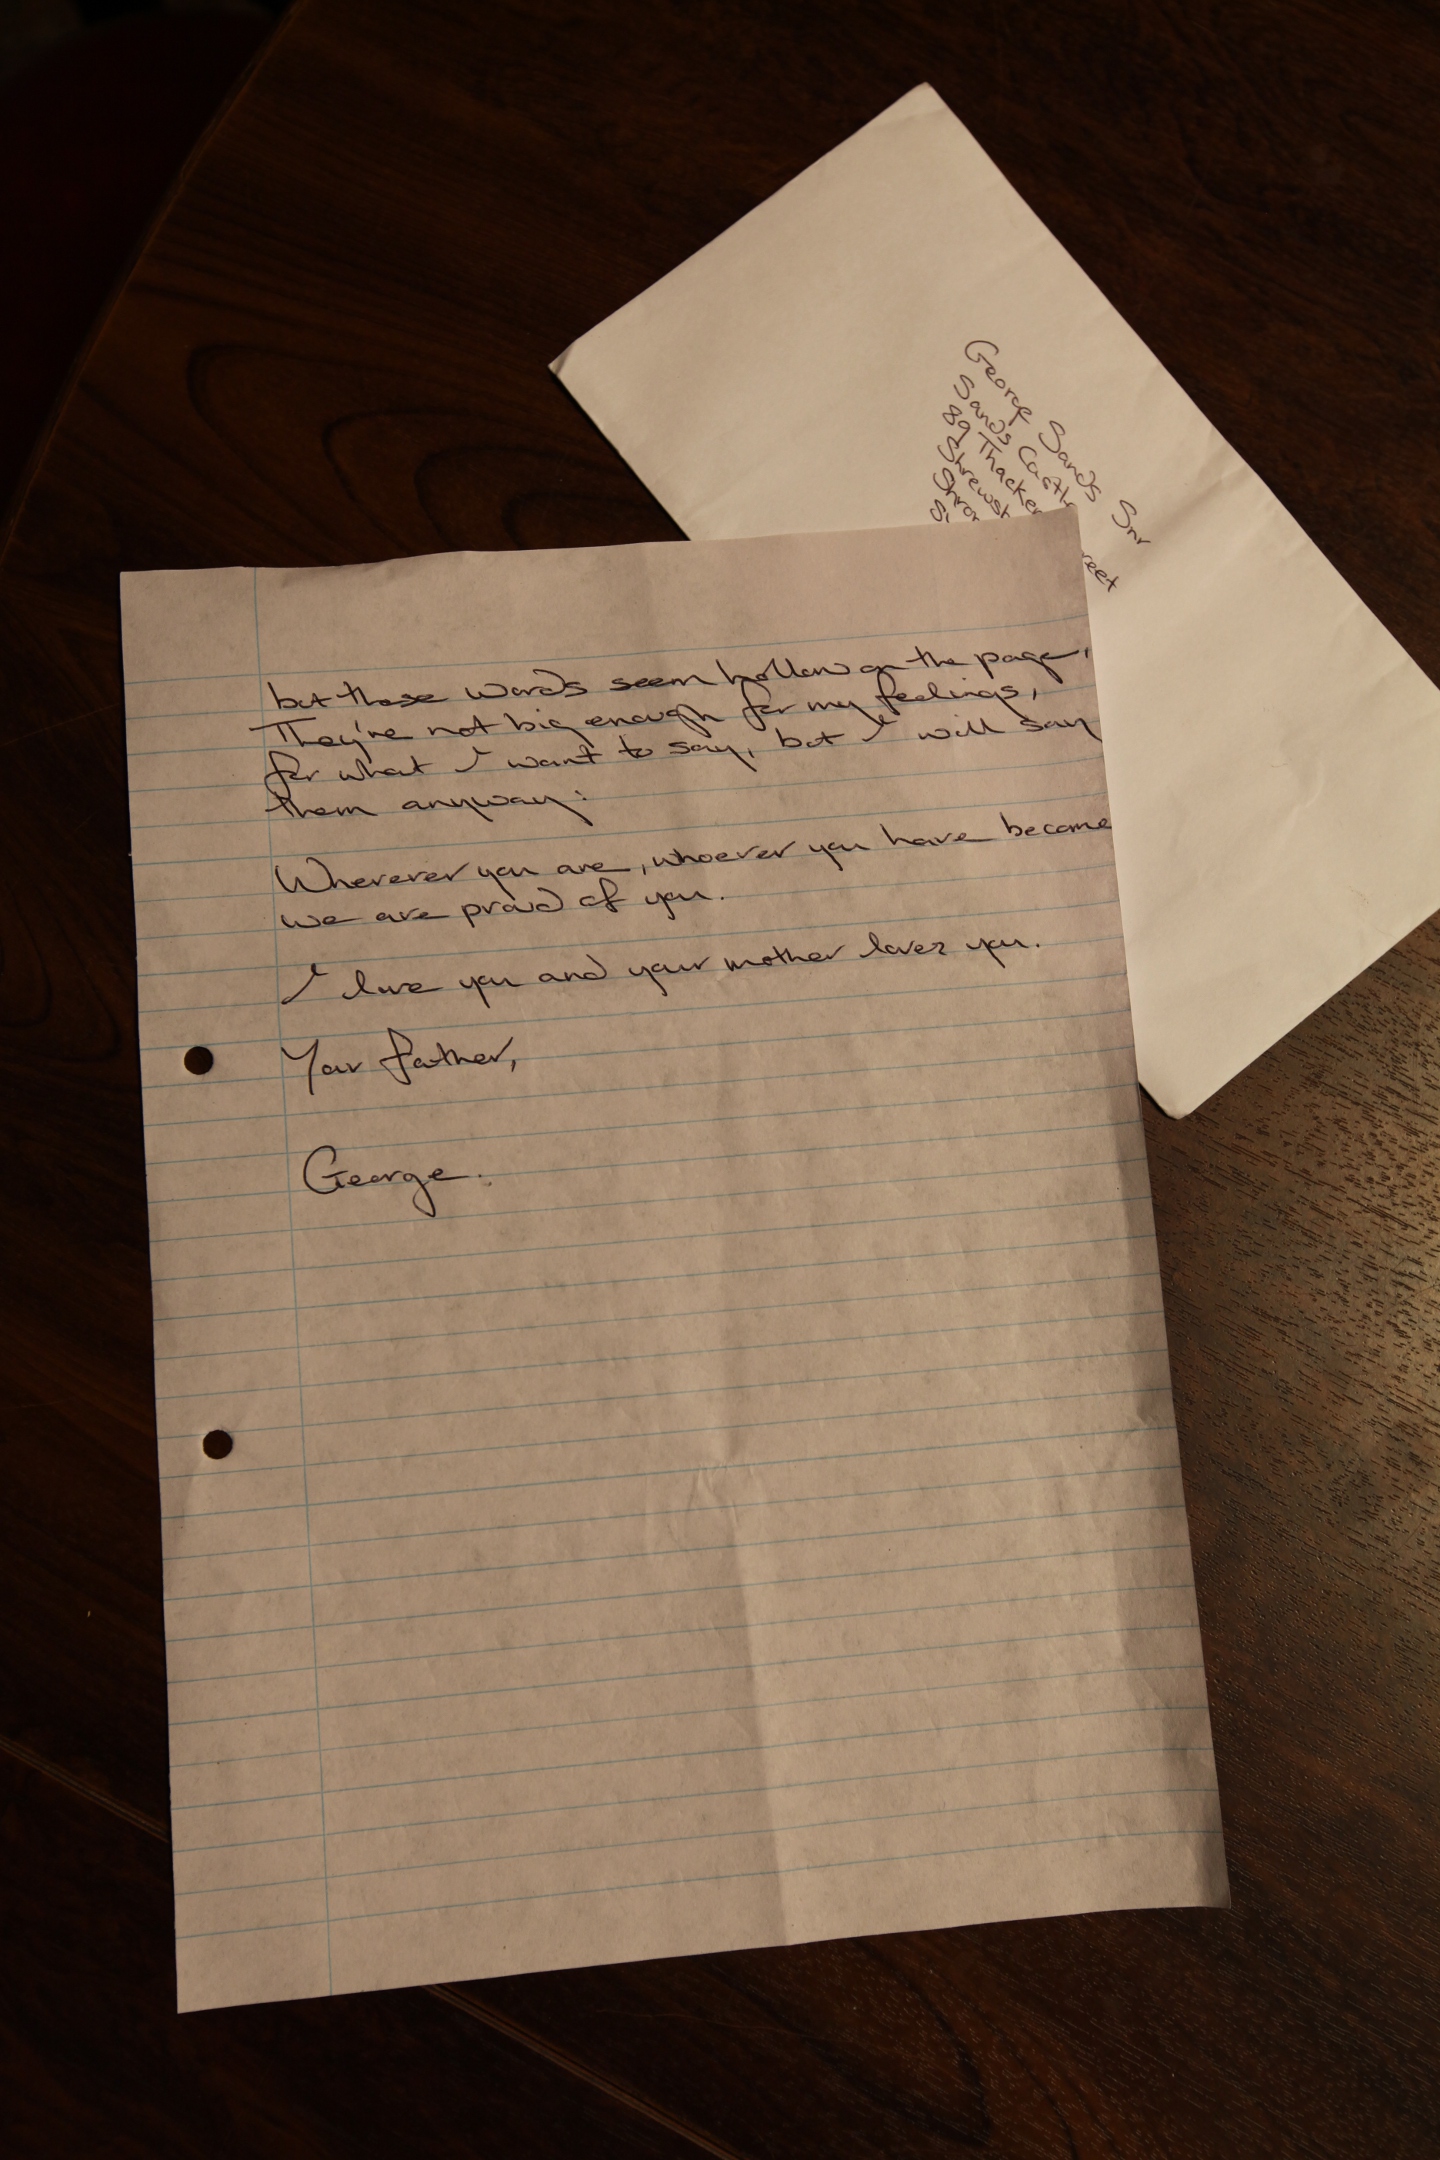 George Sands Snr
Sands Castle
89 Thacker reet
Shrewsb
Shrop
but these words seem hollow on the page.
They're not big enough for my feelings,
for what I want to say, but I will say
them anyway:
Wherever you are, whoever you have become
we are proud of you.
I love you and your mother loves you.
Your father,
George.